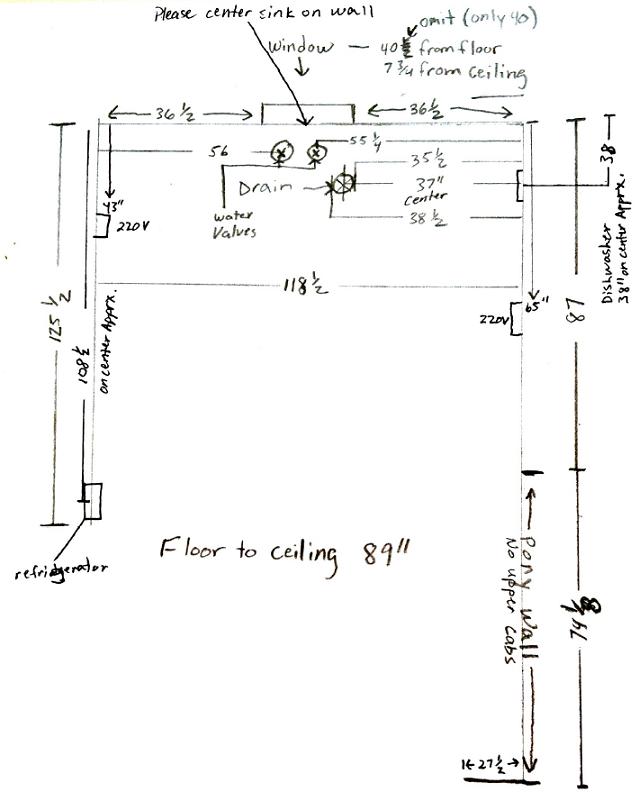 Please center sink on wall
omit (only 40)
Window — 40 from floor
7 3/4 from ceiling
36 1/2
36 1/2
56
55 1/4
35 1/2
Drain
37"
center
38 1/2
water
Valves
43"
220V
38
Dishwasher
38" on center Apprx.
118 1/2
65"
220V
87
125 1/2
108 1/2
on center Apprx.
refridgerator
Floor to ceiling 89"
Pony Wall
No upper cabs
74 1/8
27 1/2